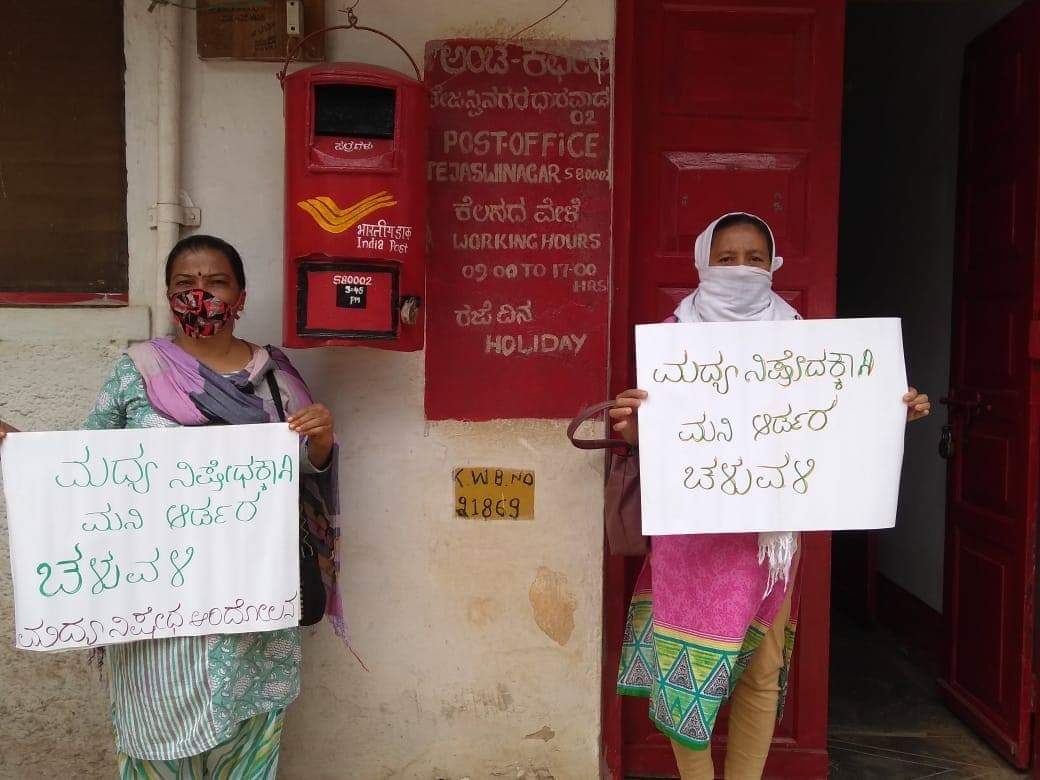 ಪತ್ರಗಳು
भारतीय डाक
India Post
580002
3-45
PM
ಅಂಚೆ-ಕಛೇರಿ
ತೇಜಸ್ವಿನಗರಧಾರವಾಡ
02
POST-OFFICE
TEJASWINAGAR 580002
ಕೆಲಸದ ವೇಳೆ
WORKING HOURS
09-00 TO 17-00
HRS
ರಜೆ ದಿನ
HOLIDAY
K.W.B.NO
21869
ಮದ್ಯ ನಿಷೇಧಕ್ಕಾಗಿ
ಮನಿ ಆರ್ಡರ
ಚಳುವಳಿ
ಮದ್ಯ ನಿಷೇಧ ಆಂದೋಲನ
ಮದ್ಯ ನಿಷೇದಕ್ಕಾಗಿ
ಮನಿ ಆರ್ಡರ
ಚಳುವಳಿ